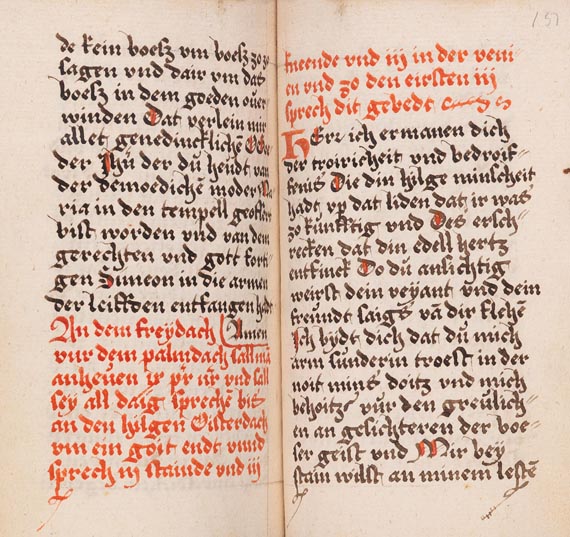 de kein boesz vm boesz zo zo
sagen vnd dair vm dat
boesz in dem goeden ouer
winden Dat verlein mir
allet genedinckliche O
der Jhũ der dü heudt van
der demoediche͂ moder Ma
ria in den tempell geoffert
bist worden vnd van dem
gerechten vnd gott forti
gen Simeon in die armen
der leiffden entfangen hadt
Amen
An dem freydach
vur dem palmdach sall ma͂
anheuen iij pr͂ nr͂ vnd sall
sey all daig spreche͂ bis
an den hilgen Oisterdach
vm ein goit endt vnnd
sprech iij stainde vnd iij
151
kneende vnd iij in der veni
en vnd zo den eirsten iij
sprech dit gebedt
HErr ich ermanen dich
der troiricheit vnd bedroiff
fenis Die din hilge minscheit
hadt vp dat liden dat ir was
zo kunfftig vnd Des ersch
recken dat din edell hertz
entfinck Do du ansichtig
weirst dein veyant vnd dein
freundt saigs va͂ dir flehe͂
Jch bydt dich dat du mich
arm sunderin troest in der
noit mins doitz vnd mich
behoitz vur den greulich
en an gesichteren der boe
ser geist vnd Mir bey
stain willst an minem leste͂